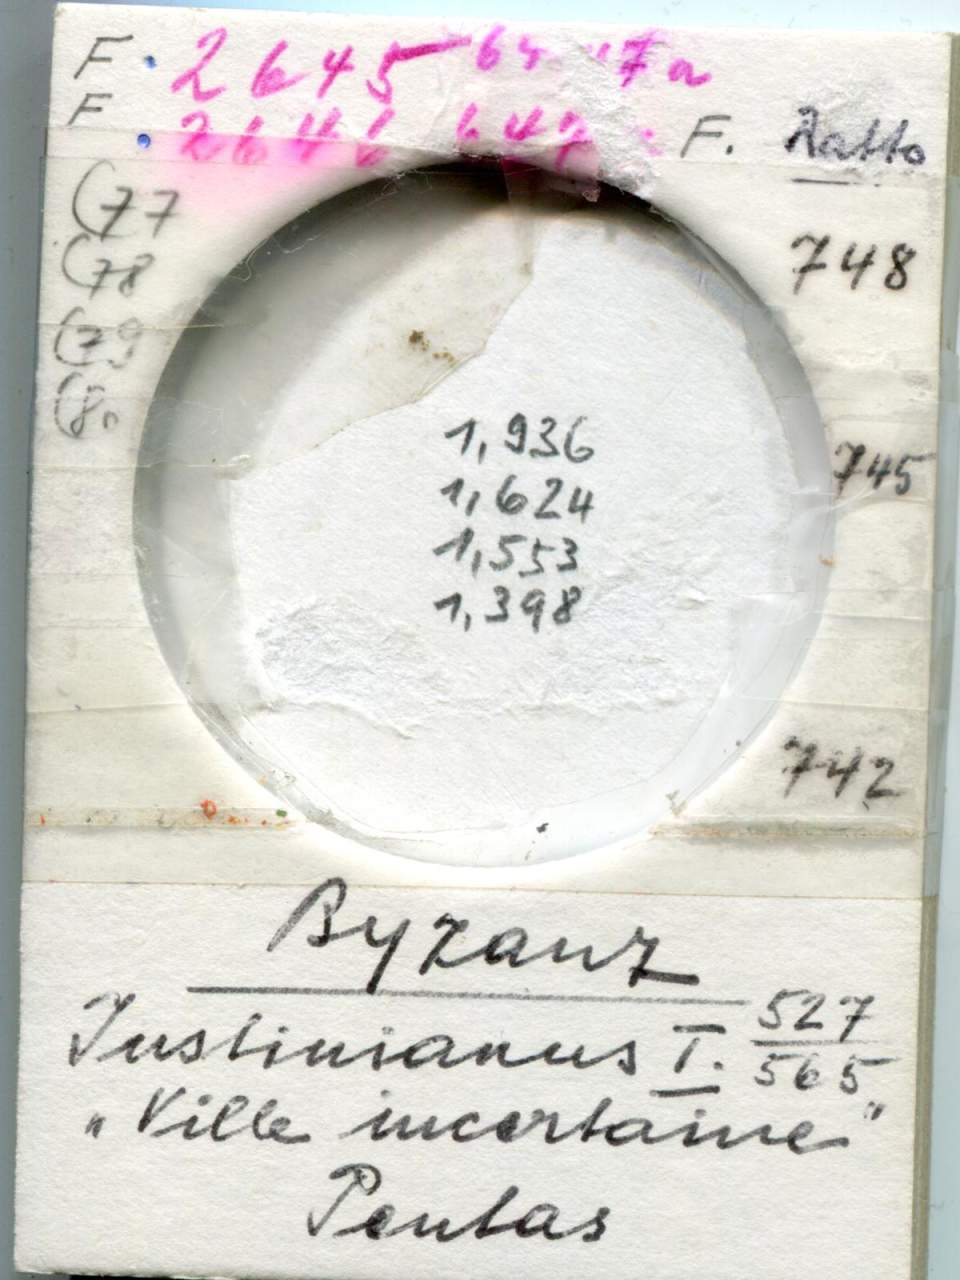 F. 2645
F. 2646 F. Ratto
(77
(78 748
(79
(80
1,936
745
1,624
1,553
1,398
742
Byzanz
Justinianus I. 527/565
"Ville incertaine"
Pentas